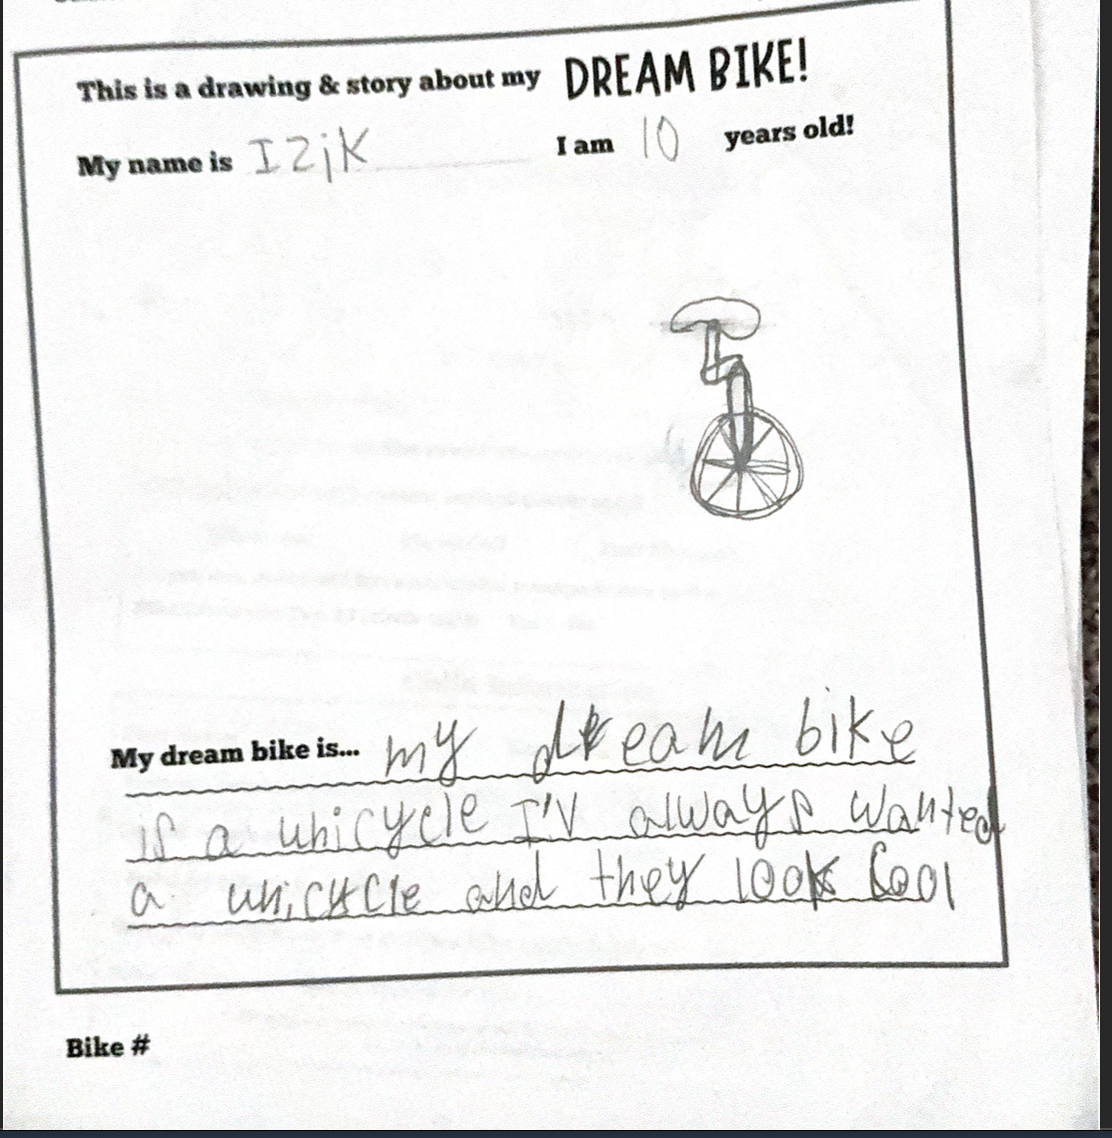 This is a drawing & story about my DREAM BIKE!
My name is Izik I am 10 years old!
My dream bike is... my dream bike
is a unicycle I'V always wanted
a unicycle and they look Cool
Bike #